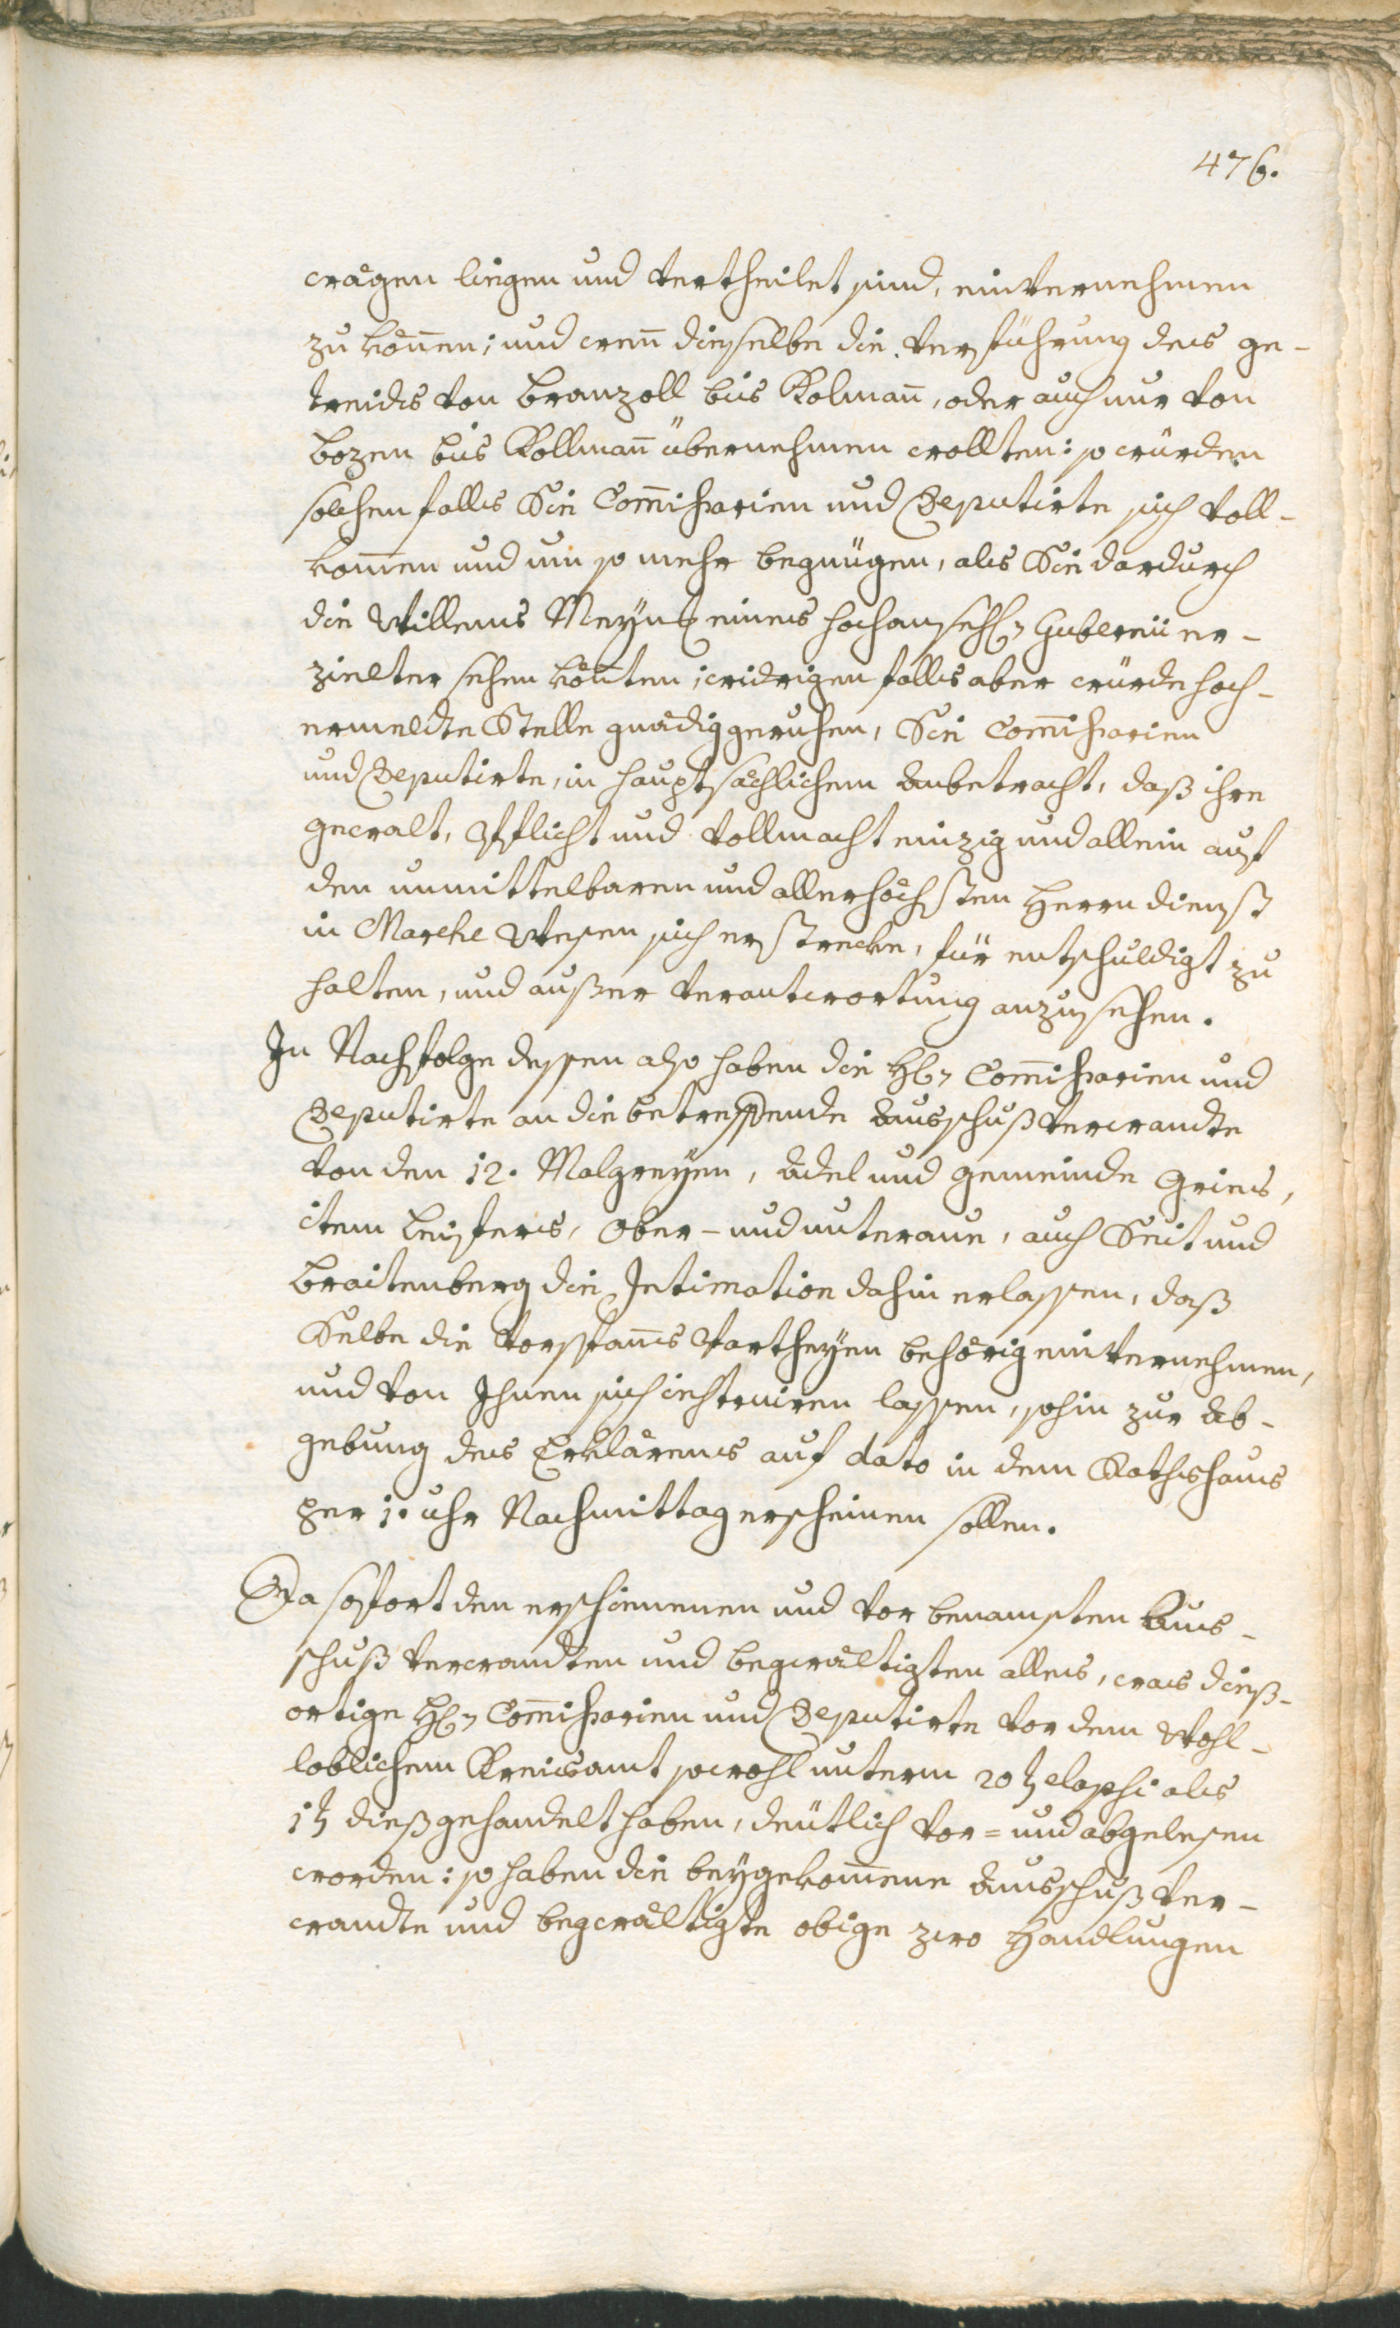 476.
wägen liegen und vertheilet sind, einvernehmen
zu könen; und wenn dieselbe die Verführung des ge-
treides von Branzoll bis Kolman, oder auch nur von
Bozen bis Kollman übernehmen wollten: so würden
solchen falls Sie Comissarien und Deputirte sich voll-
komen und um so mehr begnügen, als Sie dardurch
die Willens Meynung eines hochansehl: Gubernii er-
zielter sehen könten; widrigen falls aber würde hoch-
ermeldte Stelle gnädig geruhen, Sie Comissarien
und Deputirte, in hauptsächlichem Anbetracht, daß ihre
gewalt, Pflicht und Vollmacht einzig und allein auf
den unmittelbaren und allerhöchsten Herrn dienst
in Marche Wesen sich erstrecke, für entschuldigt zu
halten, und außer Verantwortung anzusehen.
In Nachfolge dessen also haben die H: Comissarien und
Deputirte an die betreffende Ausschuß Verwandte
von den 12. Malgreyen, Adel und Gemeinde Gries,
item Leifers, Ober- und unteraue, auch Seit und
Breitenberg die Intimation dahin erlassen, daß
Selbe die Vorspans Partheyen behörig einvernehmen,
und von Ihnen sich instruiren lassen, sohin zur Ab-
gebung des Erklärens auf dato in dem Rathshaus
per 1. uhr Nachmittag erscheinen sollen.
Da sofort den erschienenen und vor benamsten Aus-
schuß Verwandten und begwältigten alles, was dieß-
ortige H: Comissarien und Deputirte vor dem Wohl-
loblichem Kreisamt sowohl unterm 20t elapsi als
1t dieß gehandelt haben, deütlich vor= und abgelesen
worden: so haben die beygekomene Ausschuß Ver-
wandte und begwältigte obige zwo Handlungen